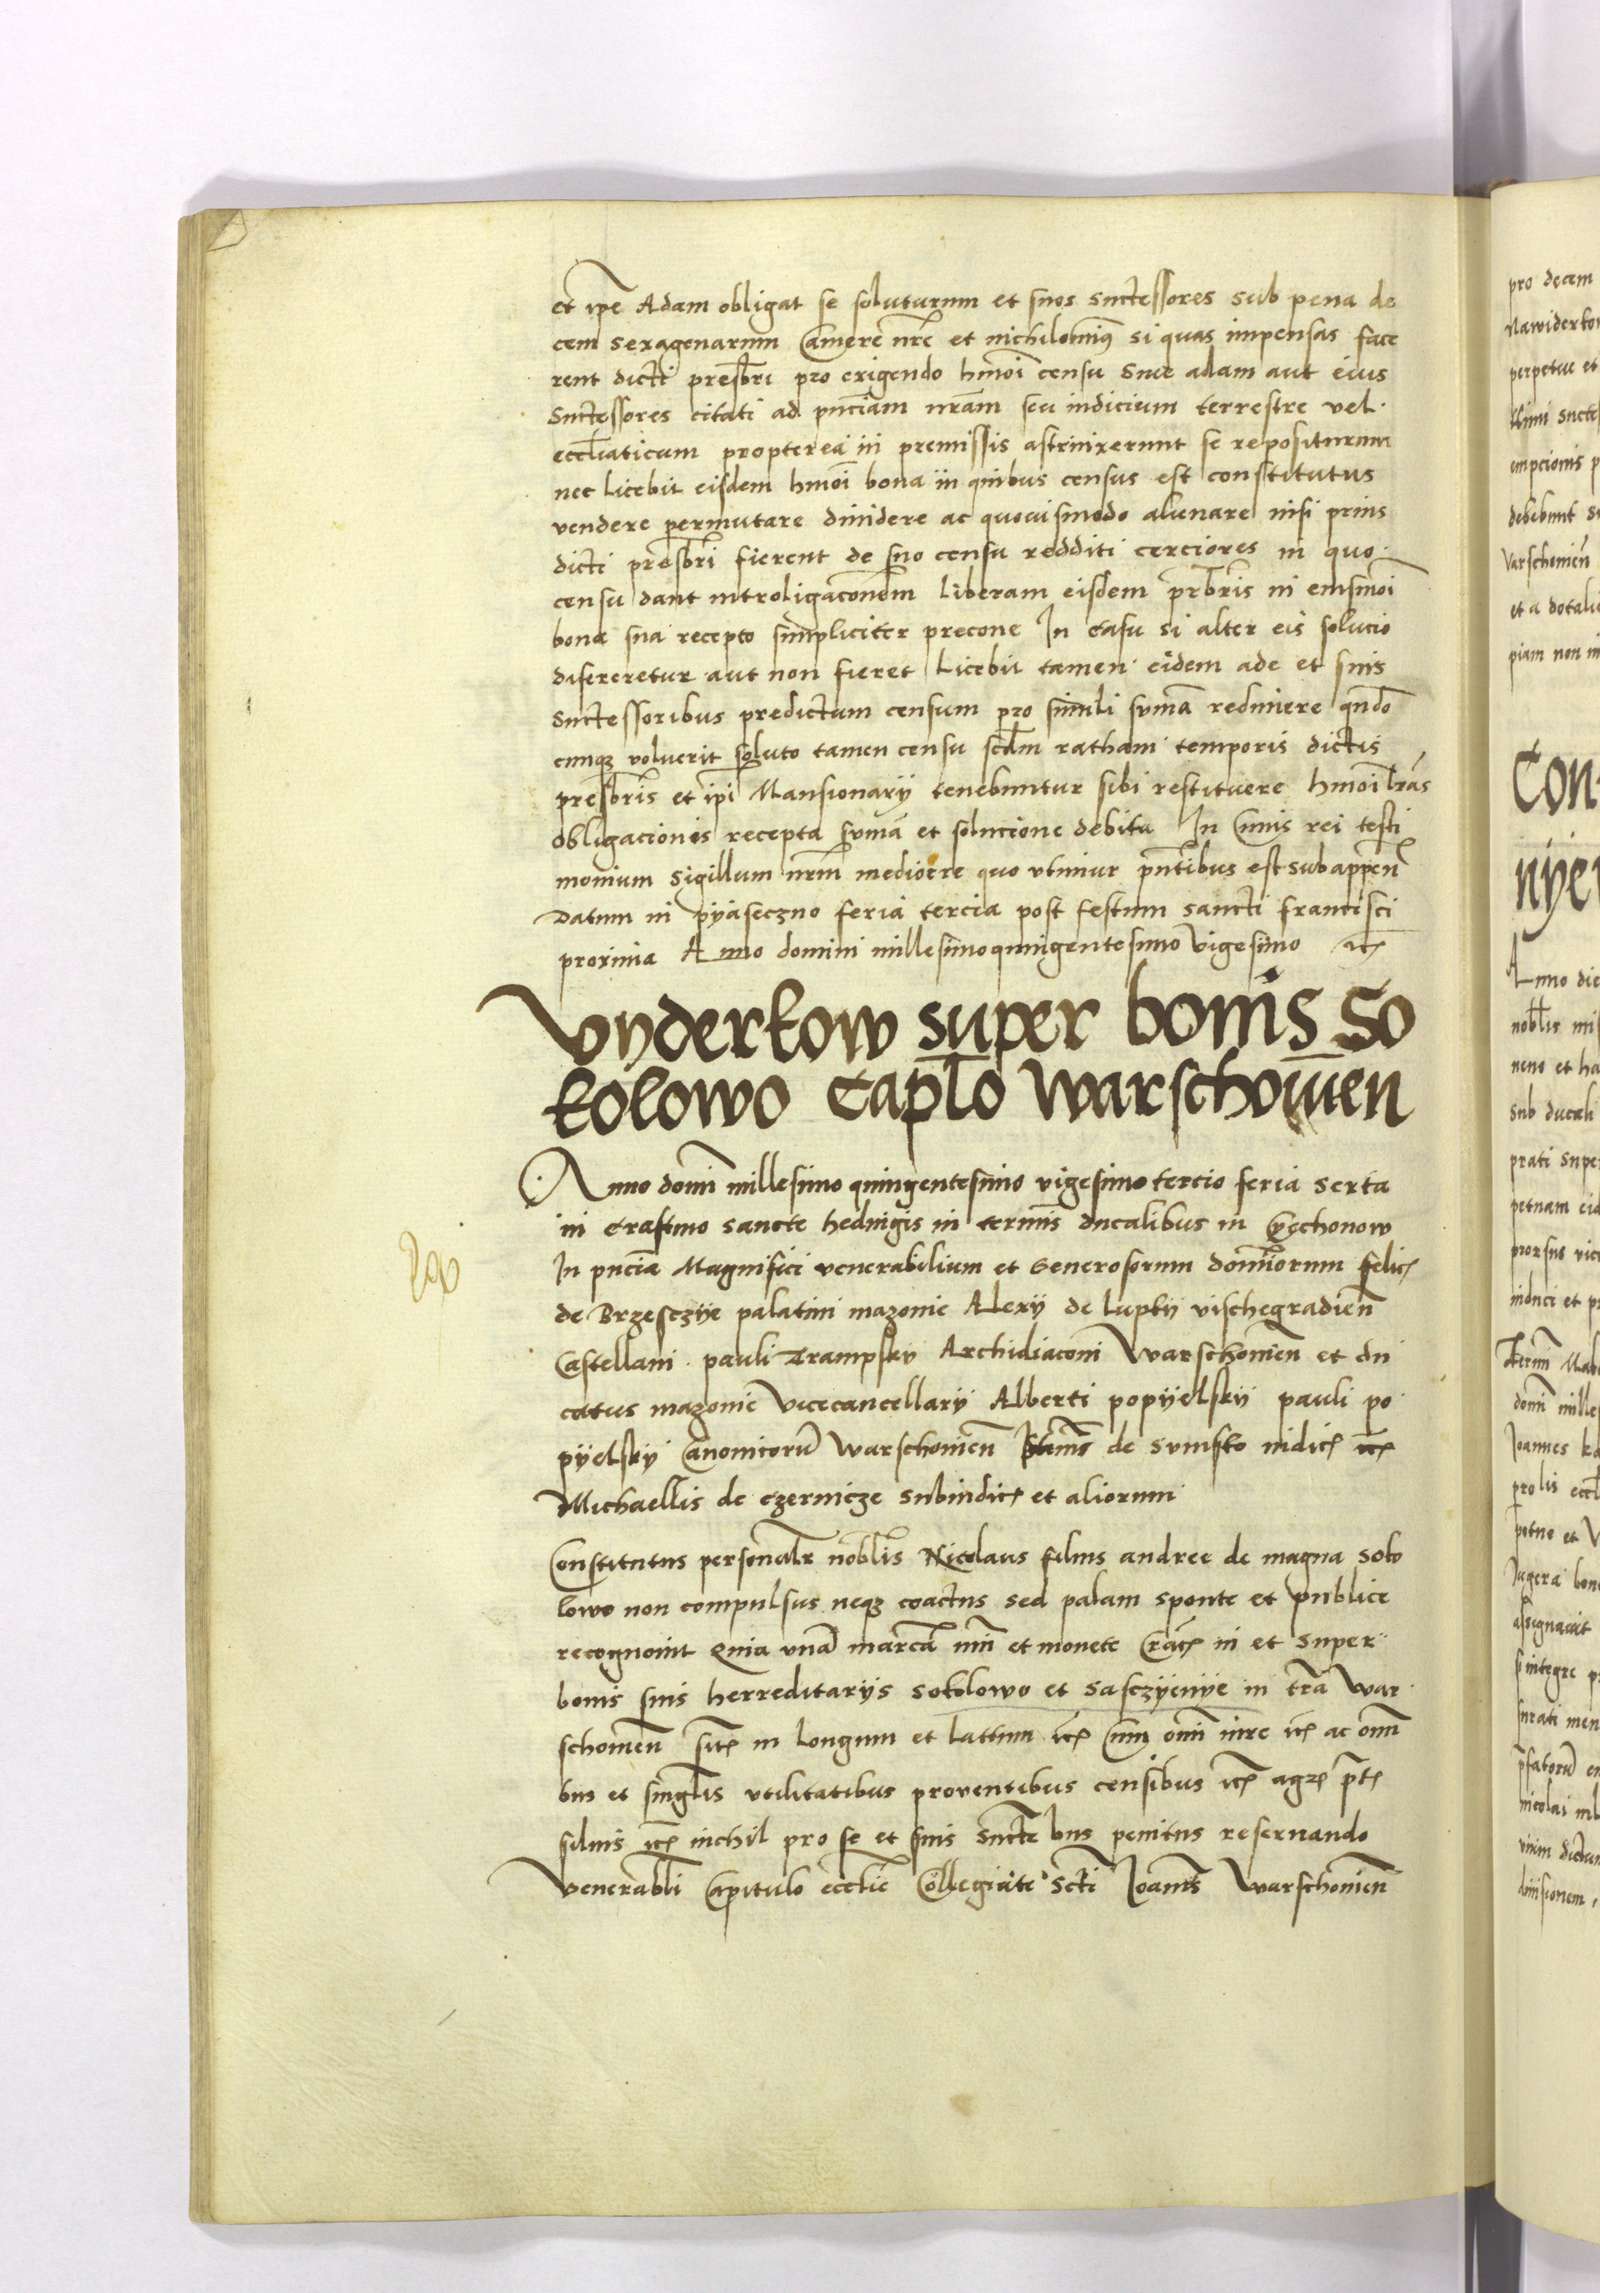 et ip̄e Adam obligat se soluturum et suos successores sub pena de
cem sexagenarum Camere nr̄e et nichilominꝰ si quas impensas face
rent dicti presb̄ri pro exigendo hmōi censu siue adam aut eius
Successores citati ad pn̄ciam nr̄am seu iudicium terrestre vel
eccl̄iaticum propterea in premissis astrinxerunt se repositurum
nec licebit eisdem hmōi bona in quibus census est constitutus
vendere permutare diuidere ac quouismodo alienare nisi prius
dicti presb̄ri fierent de suo censu redditi cerciores in quo
censu dant introligacōnem liberam eisdem pr̄bris in eiusmōi
bona sua recepto simpliciter precone In casu si alter eis solucio
differeretur aut non fieret Licebit tamen eidem ade et suis
Successoribus predictum censum pro simili sum̄a redimere qn̄do
cunqꝫ voluerit soluto tamen censu scd̄m ratham temporis dictis
presb̄ris et ip̄i Mansionarij tenebuntur sibi restituere hmōi lr̄as
obligacionis recepta sum̄a et solucione debita In Cuius rei testi
monium sigillum nr̄m mediocre quo vtimur pn̄tibus est subappen̄
Datum in pyaseczno feria tercia post festum sancti francisci
proxima Anno domini millesimoquingentesimo vigesimo etc̄
Vyderkow super bonis So
kolowo Capl̄o Warschouien̄
Anno domī millesimo quingentesimo vigesimo tercio feria sexta
in Crastino sancte heduigis in terminis ducalibus in Cyechonow
In pn̄cia Magnifici venerabilium et Generosorum dominorum felic̄
de Brzesczye palatini mazouie Alexij de luptij vischegradien̄
Castellani pauli Trampsky Archidiaconi Warschouien̄ et du
catus mazouie Vicecancellarij Alberti popyelskij pauli po
pyelsky Canonicorū Warschouien̄ de iudic̄ etc̄
Michaellis de czernicze subiudic̄ et aliorum
Constitutus personalr̄ nobl̄is Nicolaus filius andree de magna soko
lowo non compulsus neqꝫ coactus sed palam sponte et publice
recognouit Quia vnā marcā nūi et monete in et super
bonis suis herreditarijs sokolowo et sasczyenye in tr̄a War
schouien̄ sit̄ in longum et lattum etc̄ Cum om̄i iure etc̄ ac omn̄
bus et singl̄is vtilitatibus prouentibus censibus etc̄ agr̄ pt̄
siluis etc̄ nichil pro se et suis succ̄bus penitus reseruando
Venerabl̄i Capitulo eccl̄ie Collegiate sct̄i Joannis Warschouien̄